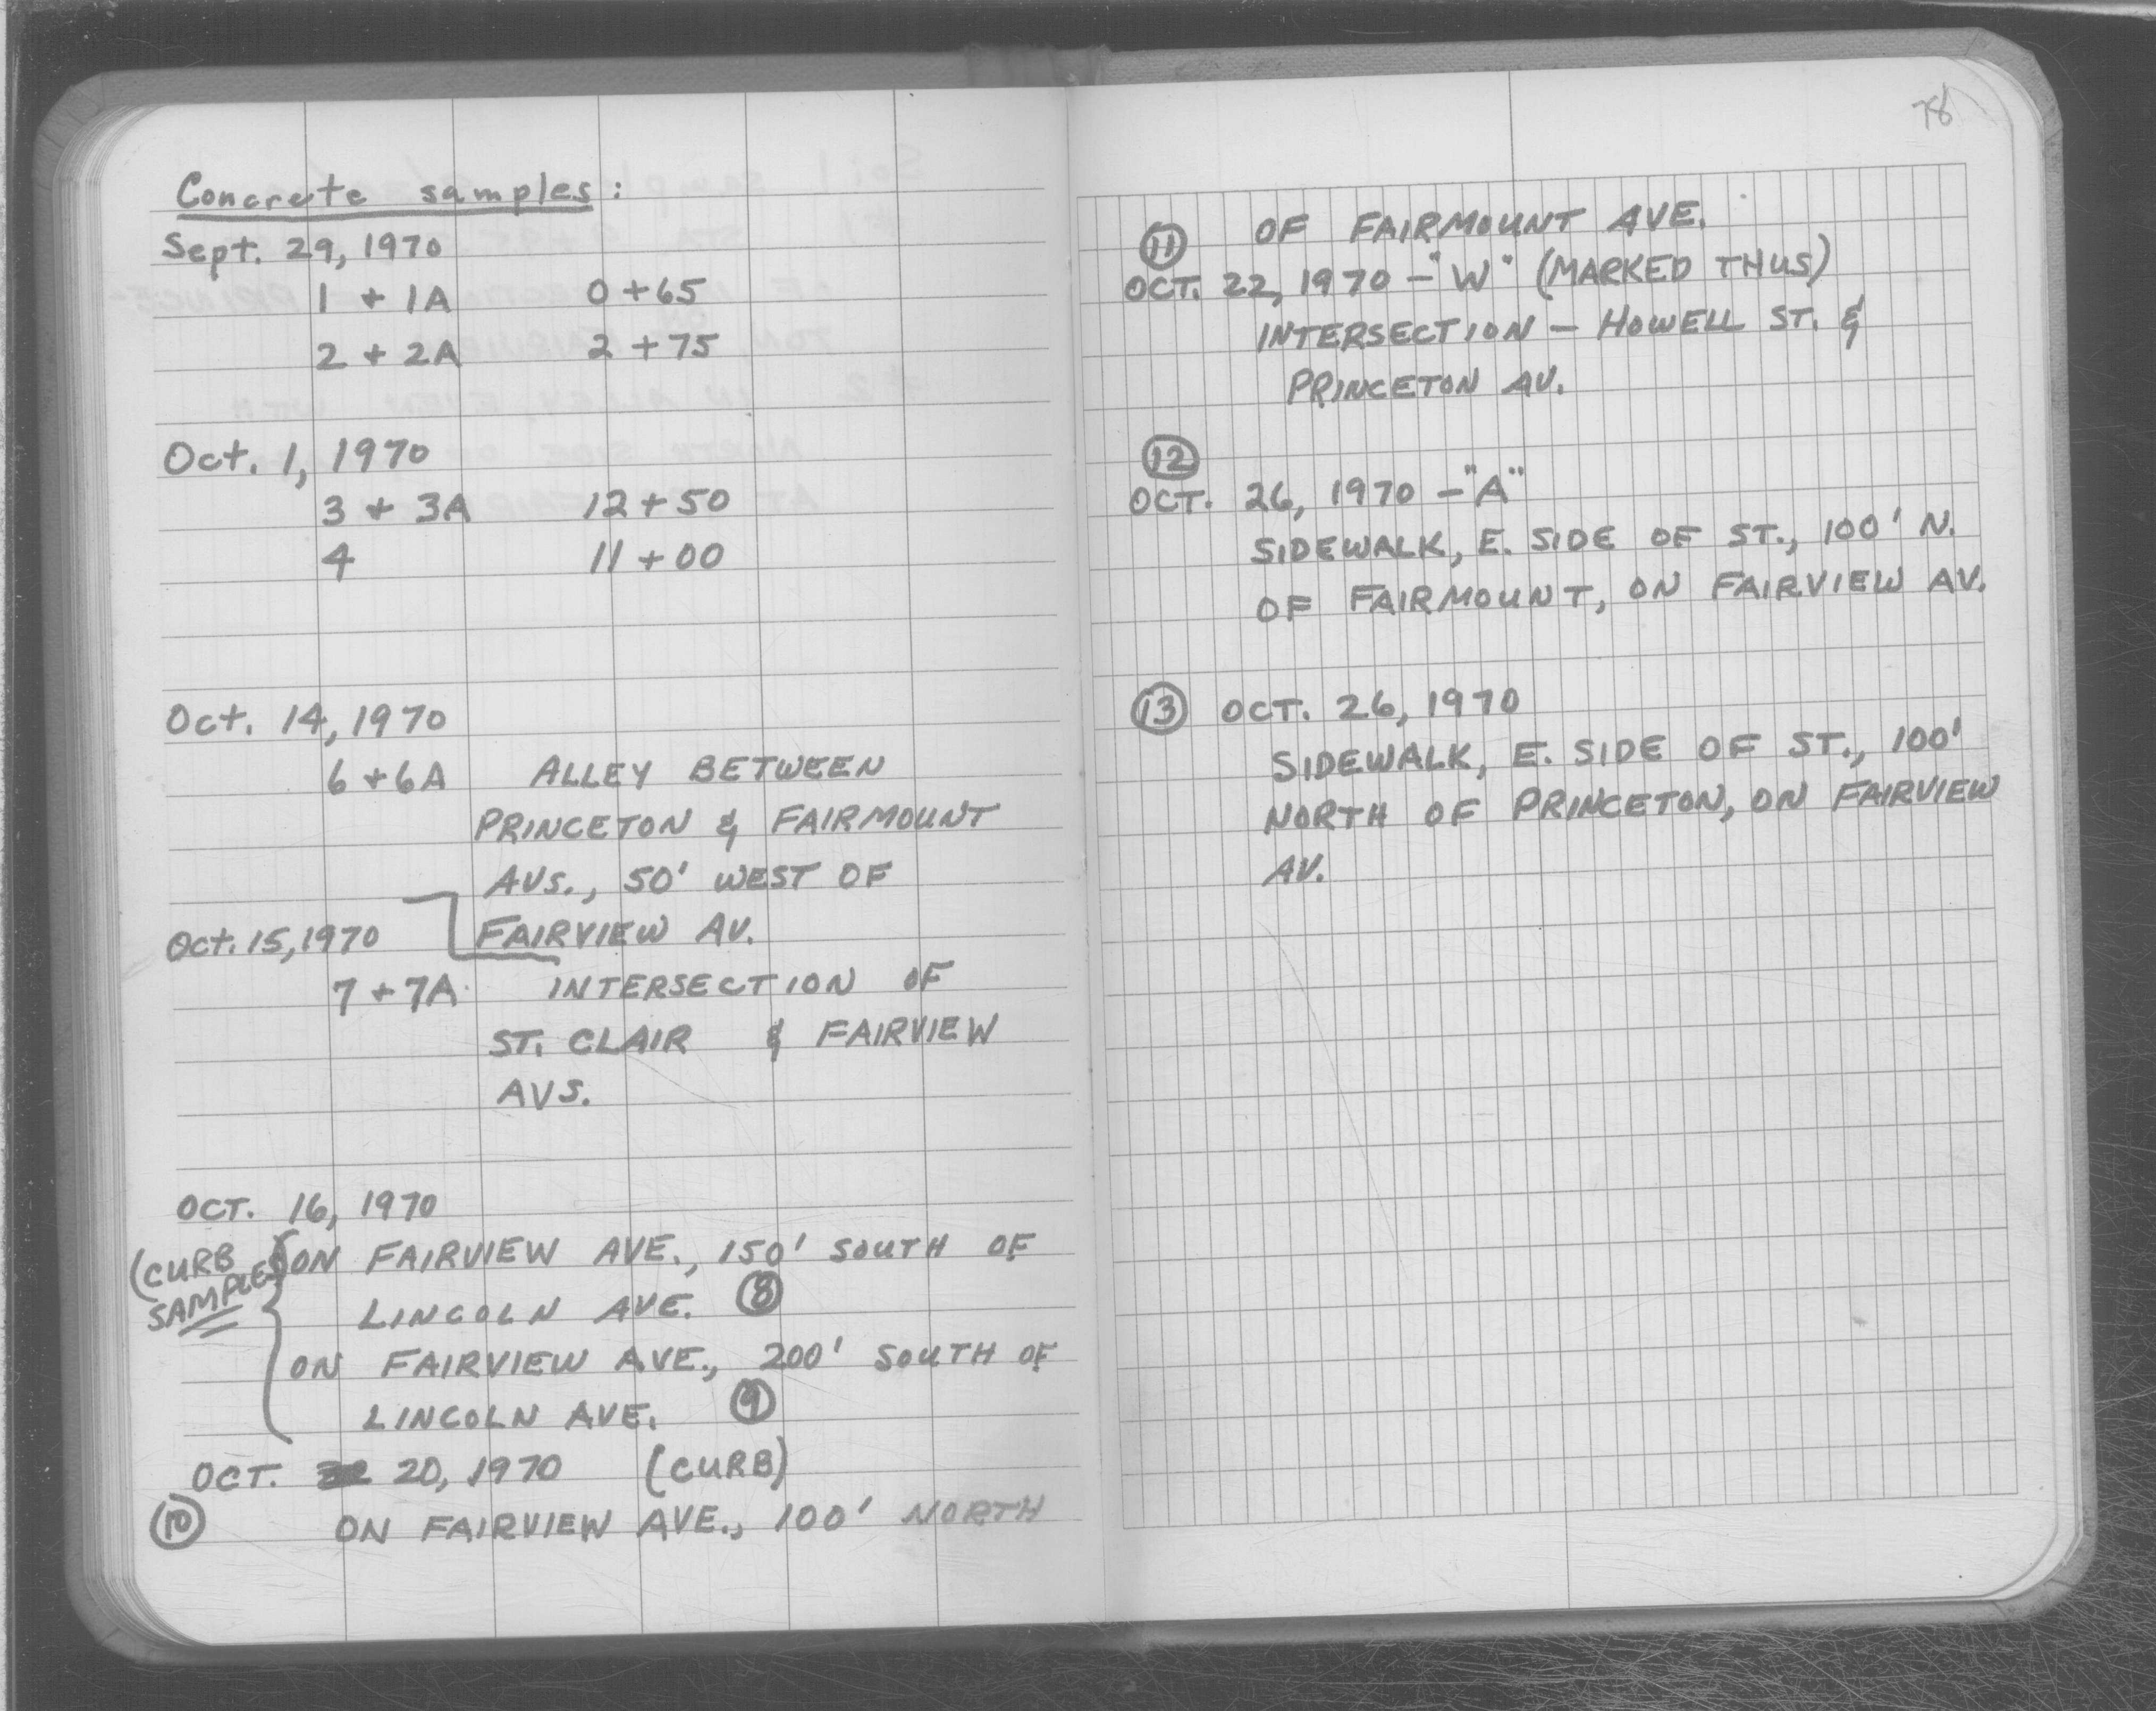 Concrete samples:
Sept. 29, 1970
1 + 1A 0+65
2 + 2A 2+75
Oct. 1, 1970
3 + 3A 12+50
4 11+00
Oct. 14, 1970
6+6A ALLEY BETWEEN
PRINCETON & FAIRMOUNT
AVS., 50' WEST OF
FAIRVIEW AV.
Oct. 15, 1970
7+7A INTERSECTION OF
ST. CLAIR & FAIRVIEW
AVS.
OCT. 16, 1970
(CURB SAMPLES)
ON FAIRVIEW AVE., 150' SOUTH OF
LINCOLN AVE. 8
ON FAIRVIEW AVE., 200' SOUTH OF
LINCOLN AVE. 9
OCT. 20, 1970 (CURB)
10 ON FAIRVIEW AVE., 100' NORTH
78
OF FAIRMOUNT AVE.
11
OCT. 22, 1970 - "W" (MARKED THUS)
INTERSECTION - HOWELL ST. &
PRINCETON AV.
12
OCT. 26, 1970 - "A"
SIDEWALK, E. SIDE OF ST., 100' N.
OF FAIRMOUNT, ON FAIRVIEW AV.
13 OCT. 26, 1970
SIDEWALK, E. SIDE OF ST., 100'
NORTH OF PRINCETON, ON FAIRVIEW
AV.